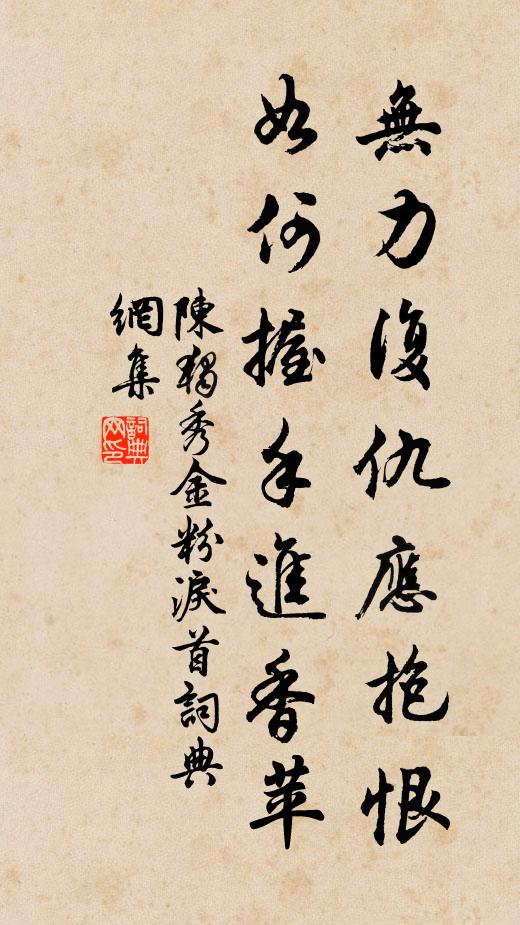 無力復仇應抱恨
如何握手進香苹
陳獨秀金粉淚首詞典
網集
詞典網印